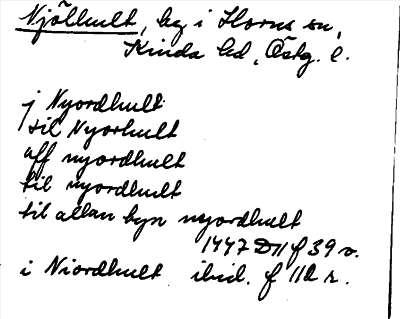 Njölhult, by i Horns sn,
Kinda hd, Östg. l.
j Nyordhult
til Nyorhult
aff nyordhult
til nyordhult
til allan byn nyordhult
1447 D11 f 39 v.
i Niordhult ibid. f 112 r.